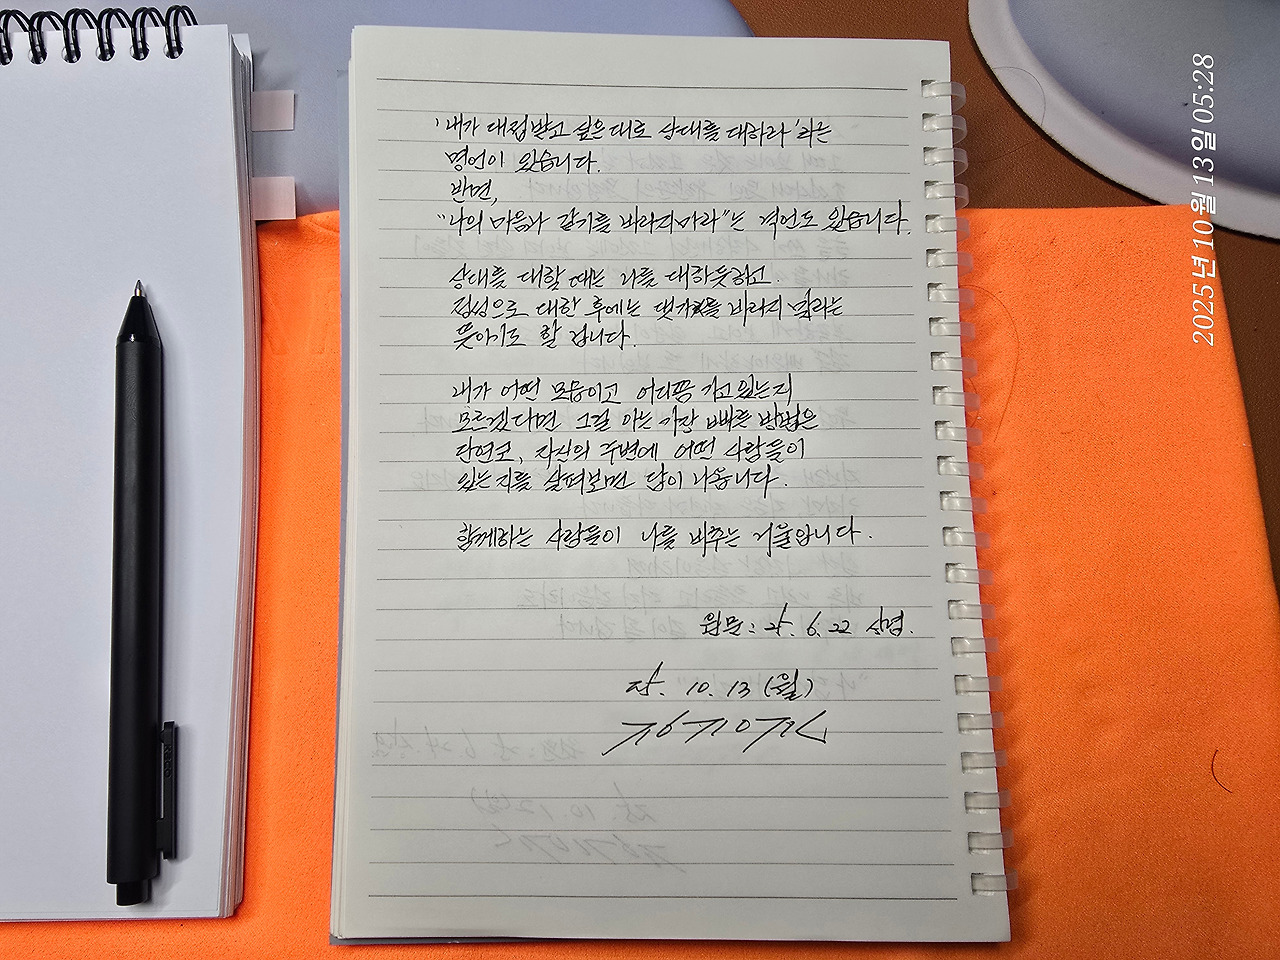 '내가 대접받고 싶은대로 상대를 대하라'라는
명언이 있습니다.
반면,
"나의 마음과 같기를 바라지마라"는 격언도 있습니다.
상대를 대할 때는 나를 대하듯하고
정성으로 대한 후에는 댓가를 바라지 말라는
뜻이기도 할 겁니다.
내가 어떤 모습이고 어디쯤 가고있는지
모르겠다면 그걸 아는 가장 빠른 방법은
단연코, 자신의 주변에 어떤 사람들이
있는지를 살펴보면 답이 나옵니다.
함께하는 사람들이 나를 비추는 거울입니다.
원문: 25. 6. 22 상념.
25. 10. 13 (월)
2025년 10월 13일 05:28